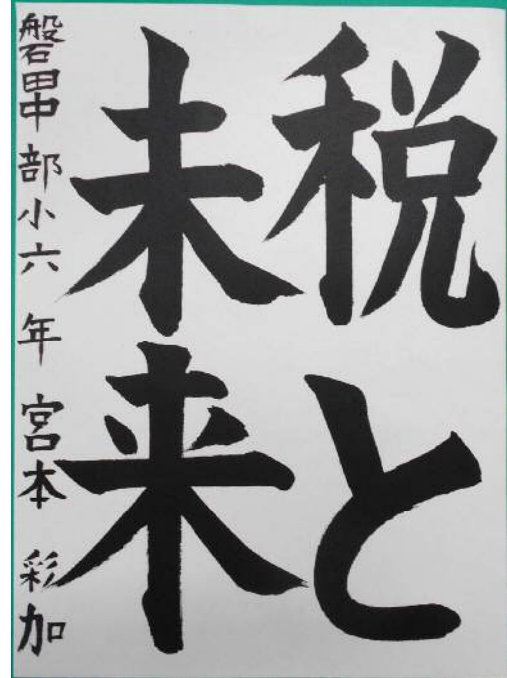 税と
未来
磐田中部小六年 宮本 彩加